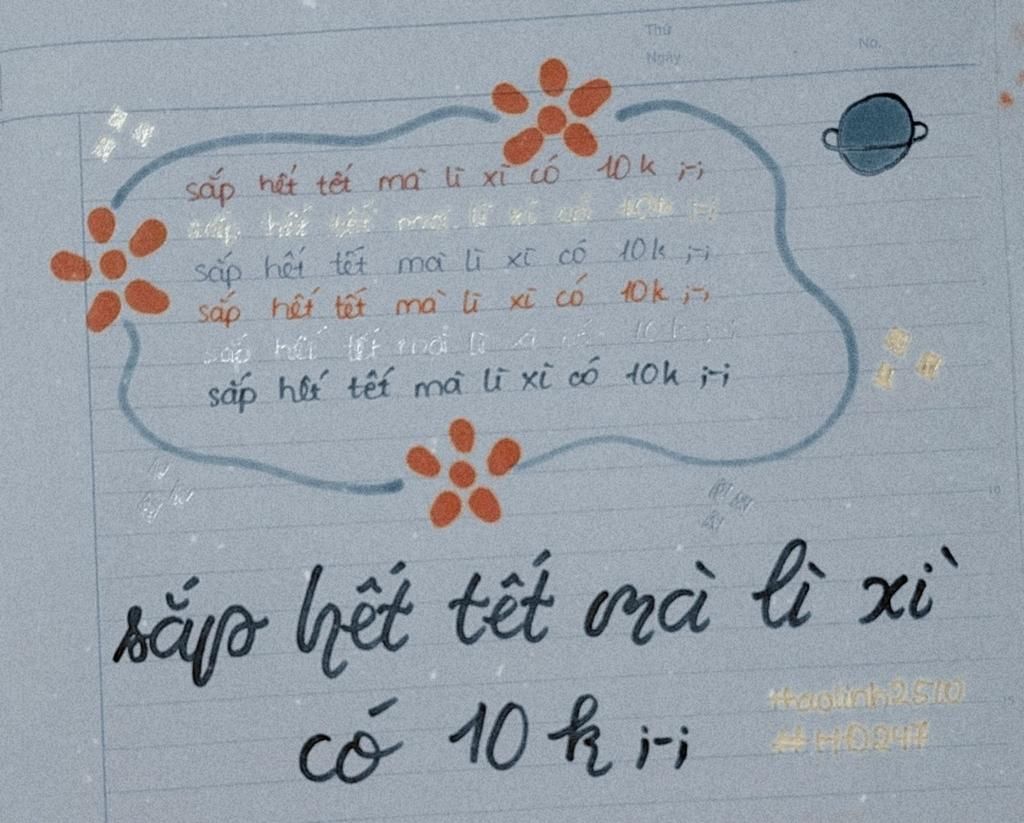 Thứ
Ngày
No.
sắp hết tết mà lì xì có 10k ;-;
sắp hết tết mà lì xì có 10k ;-;
sắp hết tết mà lì xì có 10k ;-;
sắp hết tết mà lì xì có 10k ;-;
sắp hết tết mà lì xì có 10k ;-;
sắp hết tết mà lì xì có 10k ;-;
10
sắp hết tết mà lì xì
có 10k ;-;
15